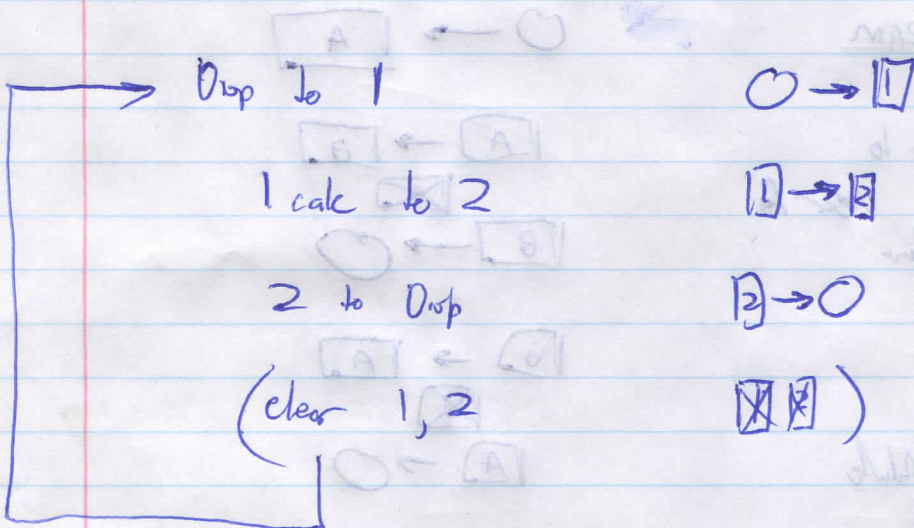 Disp to 1 → 1
1 calc to 2 1 → 2
2 to Disp 2 →
(clear 1, 2 1 2)